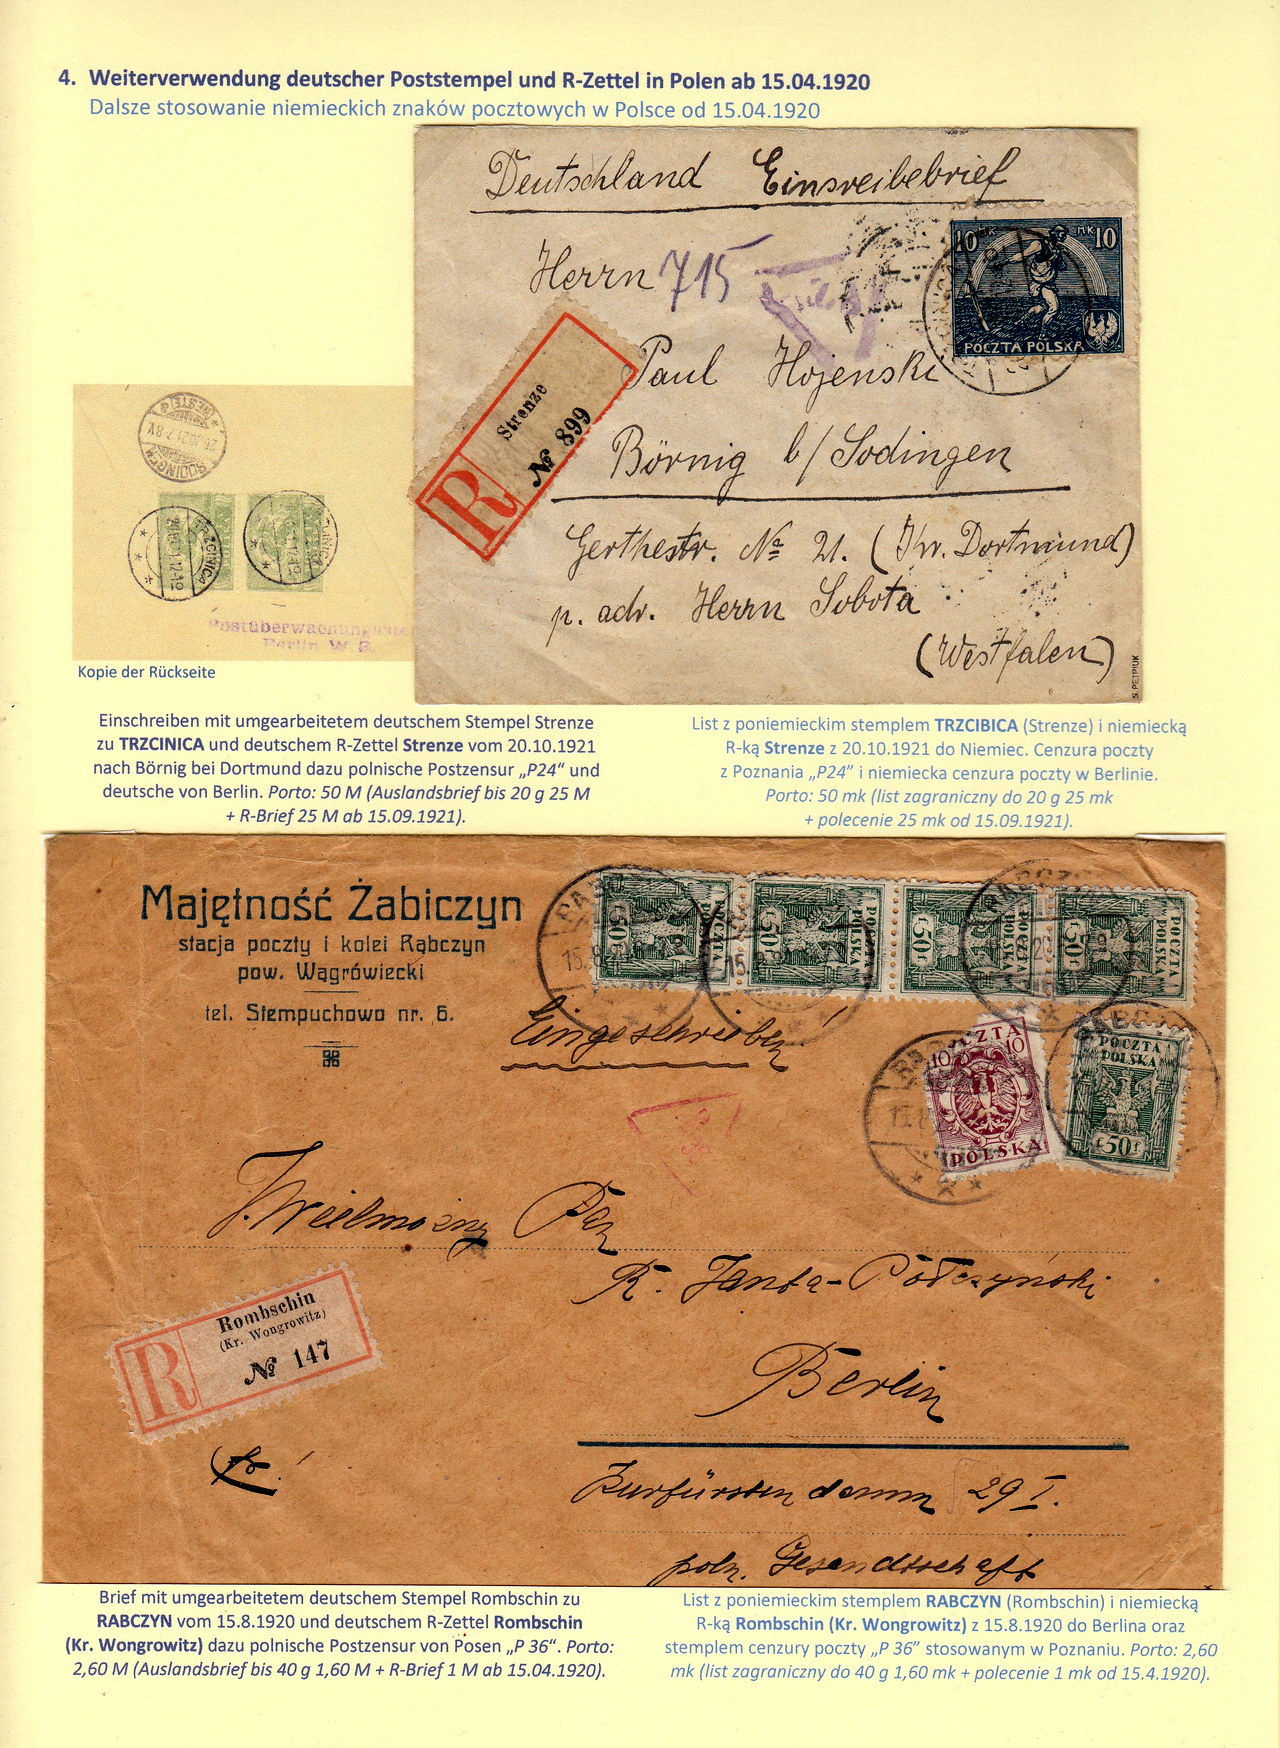 4. Weiterverwendung deutscher Poststempel und R-Zettel in Polen ab 15.04.1920
Dalsze stosowanie niemieckich znaków pocztowych w Polsce od 15.04.1920
Deutschland Einsreibebrief
Herrn 715
10 MK MK 10
POCZTA POLSKA
Paul Hojenski
Strenze
R № 899
Börnig b/Sodingen
Gerthestr. № 21. (Kr. Dortmund)
p. adr. Herrn Sobota
(Westfalen)
S. PETRIUK
TRZCINICA
Postüberwachung
Berlin W. 8.
Kopie der Rückseite
Einschreiben mit umgearbeitetem deutschem Stempel Strenze
zu TRZCINICA und deutschem R-Zettel Strenze vom 20.10.1921
nach Börnig bei Dortmund dazu polnische Postzensur „P24“ und
deutsche von Berlin. Porto: 50 M (Auslandsbrief bis 20 g 25 M
+ R-Brief 25 M ab 15.09.1921).
List z poniemieckim stemplem TRZCIBICA (Strenze) i niemiecką
R-ką Strenze z 20.10.1921 do Niemiec. Cenzura poczty
z Poznania „P24” i niemiecka cenzura poczty w Berlinie.
Porto: 50 mk (list zagraniczny do 20 g 25 mk
+ polecenie 25 mk od 15.09.1921).
Majętność Żabiczyn
stacja poczty i kolei Rąbczyn
pow. Wągrówiecki
tel. Stempuchowo nr. 6.
POCZTA POLSKA 50f
POCZTA POLSKA 50f
POCZTA POLSKA 50f
POCZTA POLSKA 50f
Eingeschrieben
POCZTA
10 10
POLSKA
POCZTA
POLSKA
50f
J. Wielmożny Pan
R. Janta-Połczyński
Rombschin
(Kr. Wongrowitz)
R № 147
Berlin
Kurfürstendamm 29 I.
poln. Gesandtschaft
Brief mit umgearbeitetem deutschem Stempel Rombschin zu
RABCZYN vom 15.8.1920 und deutschem R-Zettel Rombschin
(Kr. Wongrowitz) dazu polnische Postzensur von Posen „P 36“. Porto:
2,60 M (Auslandsbrief bis 40 g 1,60 M + R-Brief 1 M ab 15.04.1920).
List z poniemieckim stemplem RABCZYN (Rombschin) i niemiecką
R-ką Rombschin (Kr. Wongrowitz) z 15.8.1920 do Berlina oraz
stemplem cenzury poczty „P 36” stosowanym w Poznaniu. Porto: 2,60
mk (list zagraniczny do 40 g 1,60 mk + polecenie 1 mk od 15.4.1920).